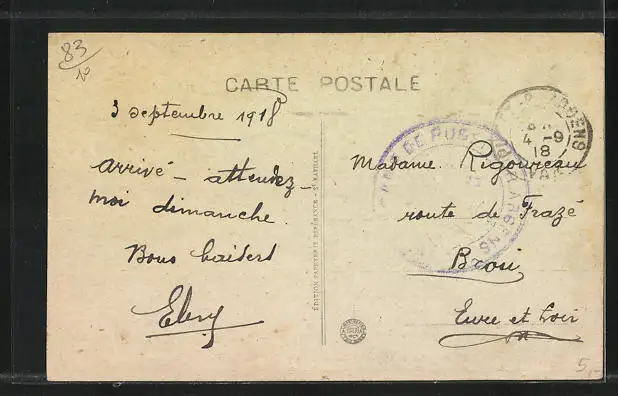 83
CARTE POSTALE
3 septembre 1918
Arrivé - attendez-
moi dimanche.
Bons baisers
Madame Rigoureau
route de Frazé
Brou
Eure et Loir
ÉDITION PAPETERIE ESPÉRANCE - ST RAPHAEL
DE PUGET
ARGENS
4 -9
18
VAR
5,-